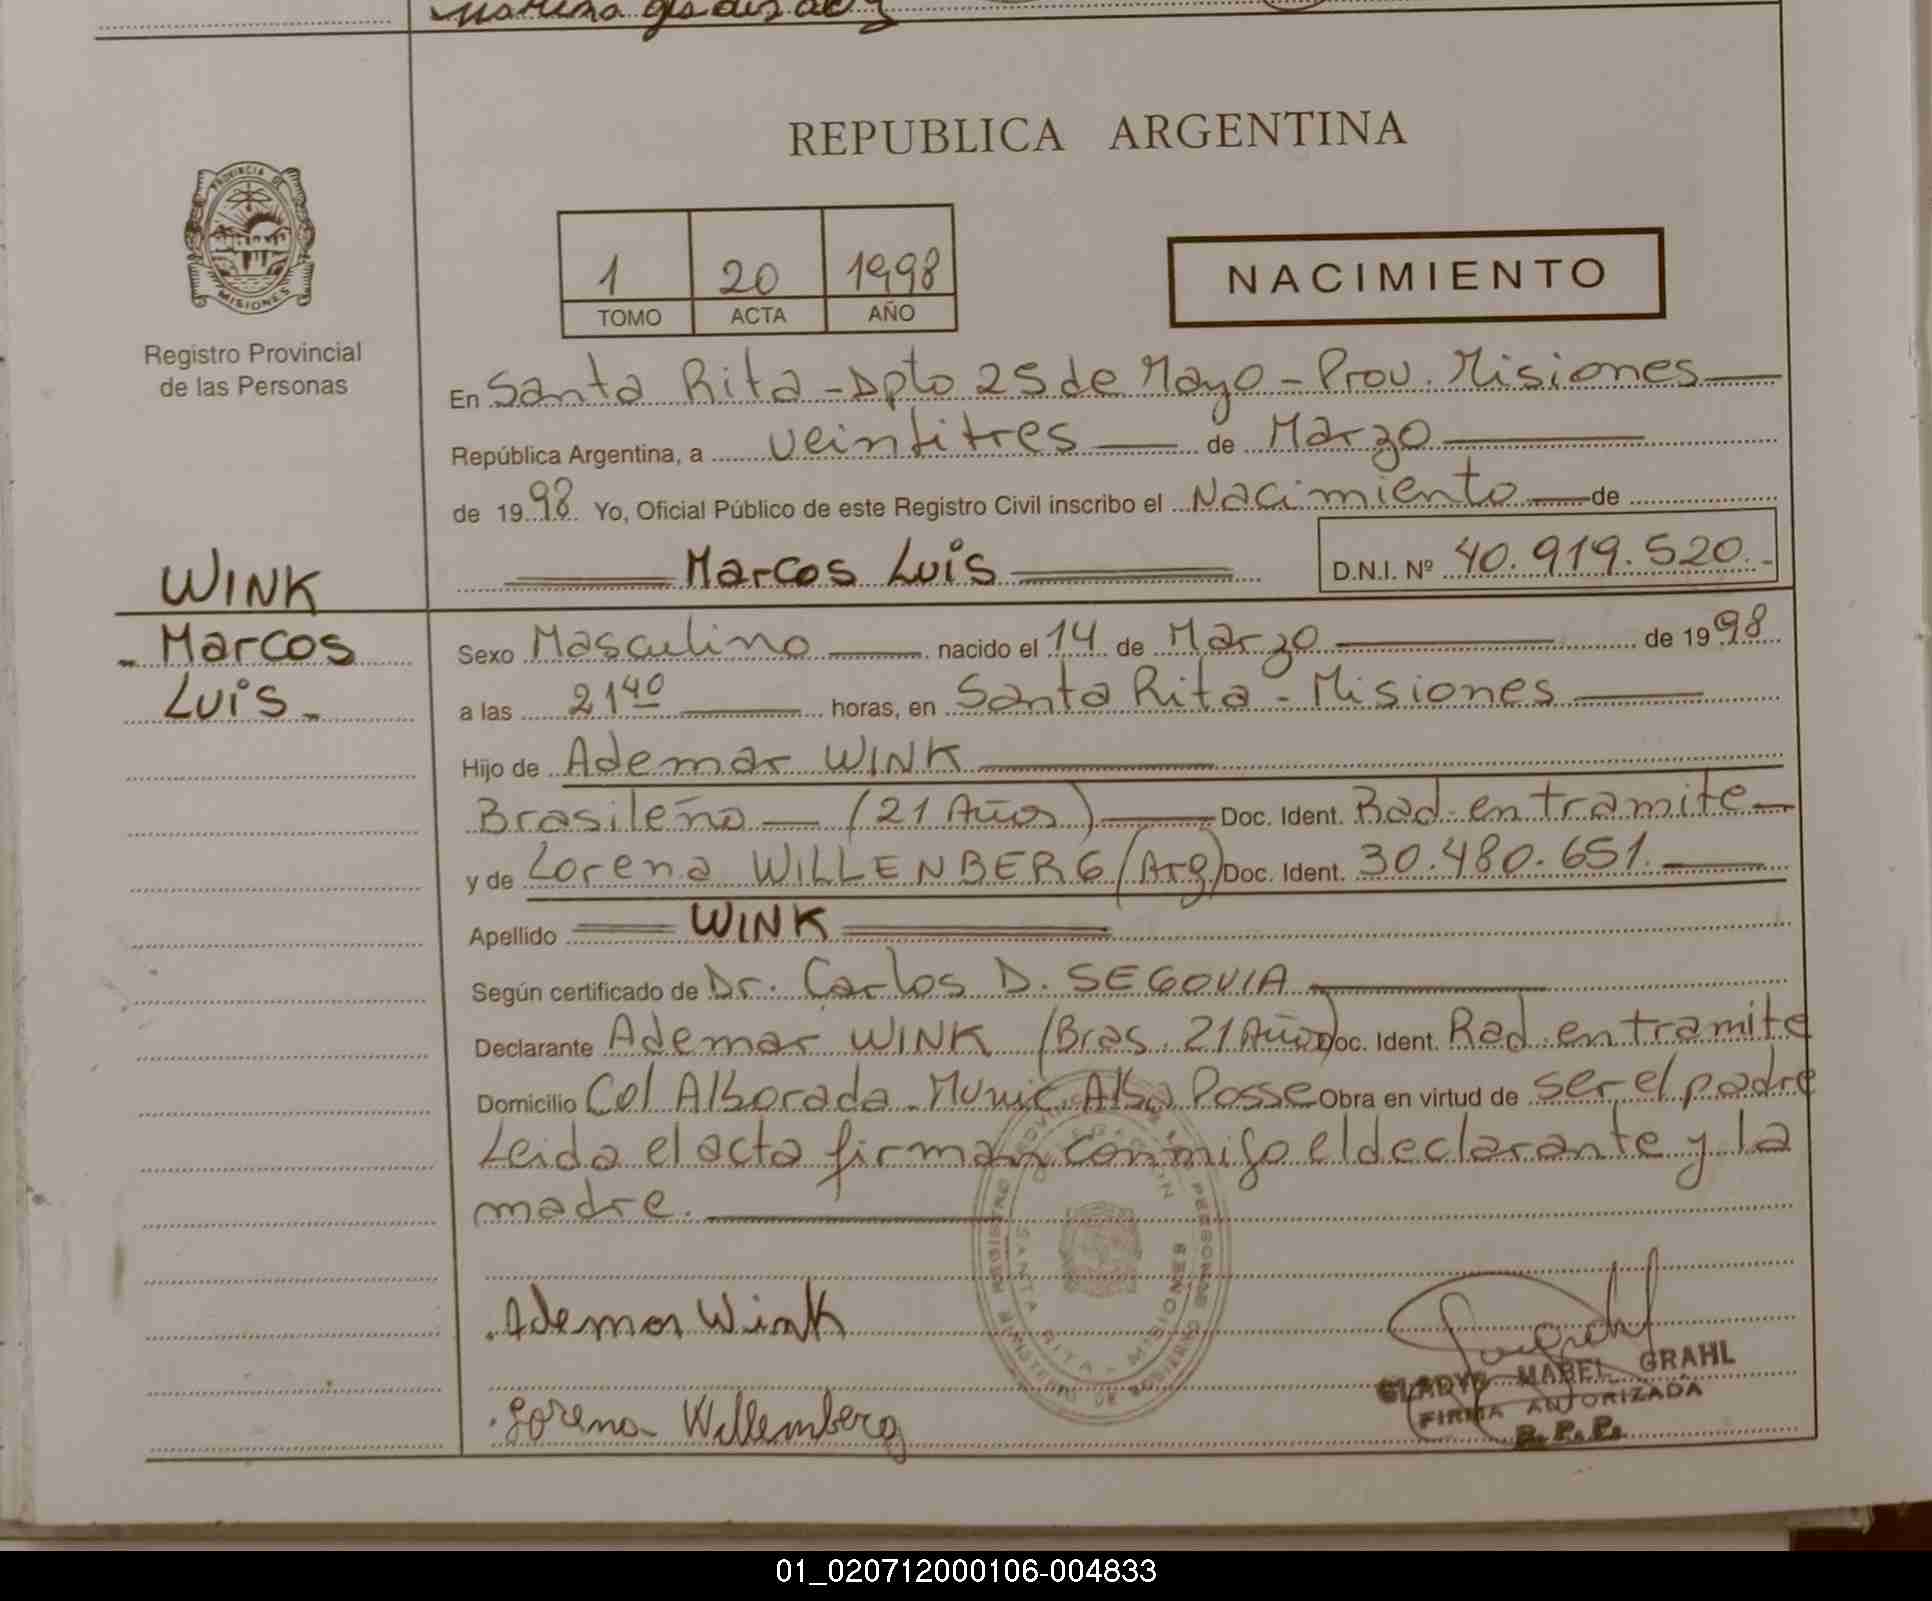 REPUBLICA ARGENTINA
PROVINCIA DE
MISIONES
Registro Provincial
de las Personas
1 20 1998
TOMO ACTA AÑO
NACIMIENTO
En Santa Rita - Dpto 25 de Mayo - Prov. Misiones
República Argentina, a veintitres de Marzo
de 1998 Yo, Oficial Público de este Registro Civil inscribo el Nacimiento de
Marcos Luis D.N.I. Nº 40.919.520.-
WINK
Marcos
Luis.
Sexo Masculino nacido el 14 de Marzo de 1998
a las 21 40 horas, en Santa Rita - Misiones
Hijo de Ademar WINK
Brasileño (21 Años) Doc. Ident. Rad. en tramite
y de Lorena WILLENBERG (Arg) Doc. Ident. 30.480.651.
Apellido WINK
Según certificado de Dr. Carlos D. SEGOVIA
Declarante Ademar WINK (Bras. 21 Años) Doc. Ident. Rad. en tramite
Domicilio Col Alborada - Munic. Alba Posse Obra en virtud de ser el padre
Leida el acta firman conmigo el declarante y la
madre.
Ademar Wink
Lorena Willemberg
REGISTRO PERSONAS
DELEGACION
SANTA RITA - MISIONES
MINISTERIO DE GOBIERNO
GLADYS MABEL GRAHL
FIRMA AUTORIZADA
R. P. P.
01_020712000106-004833